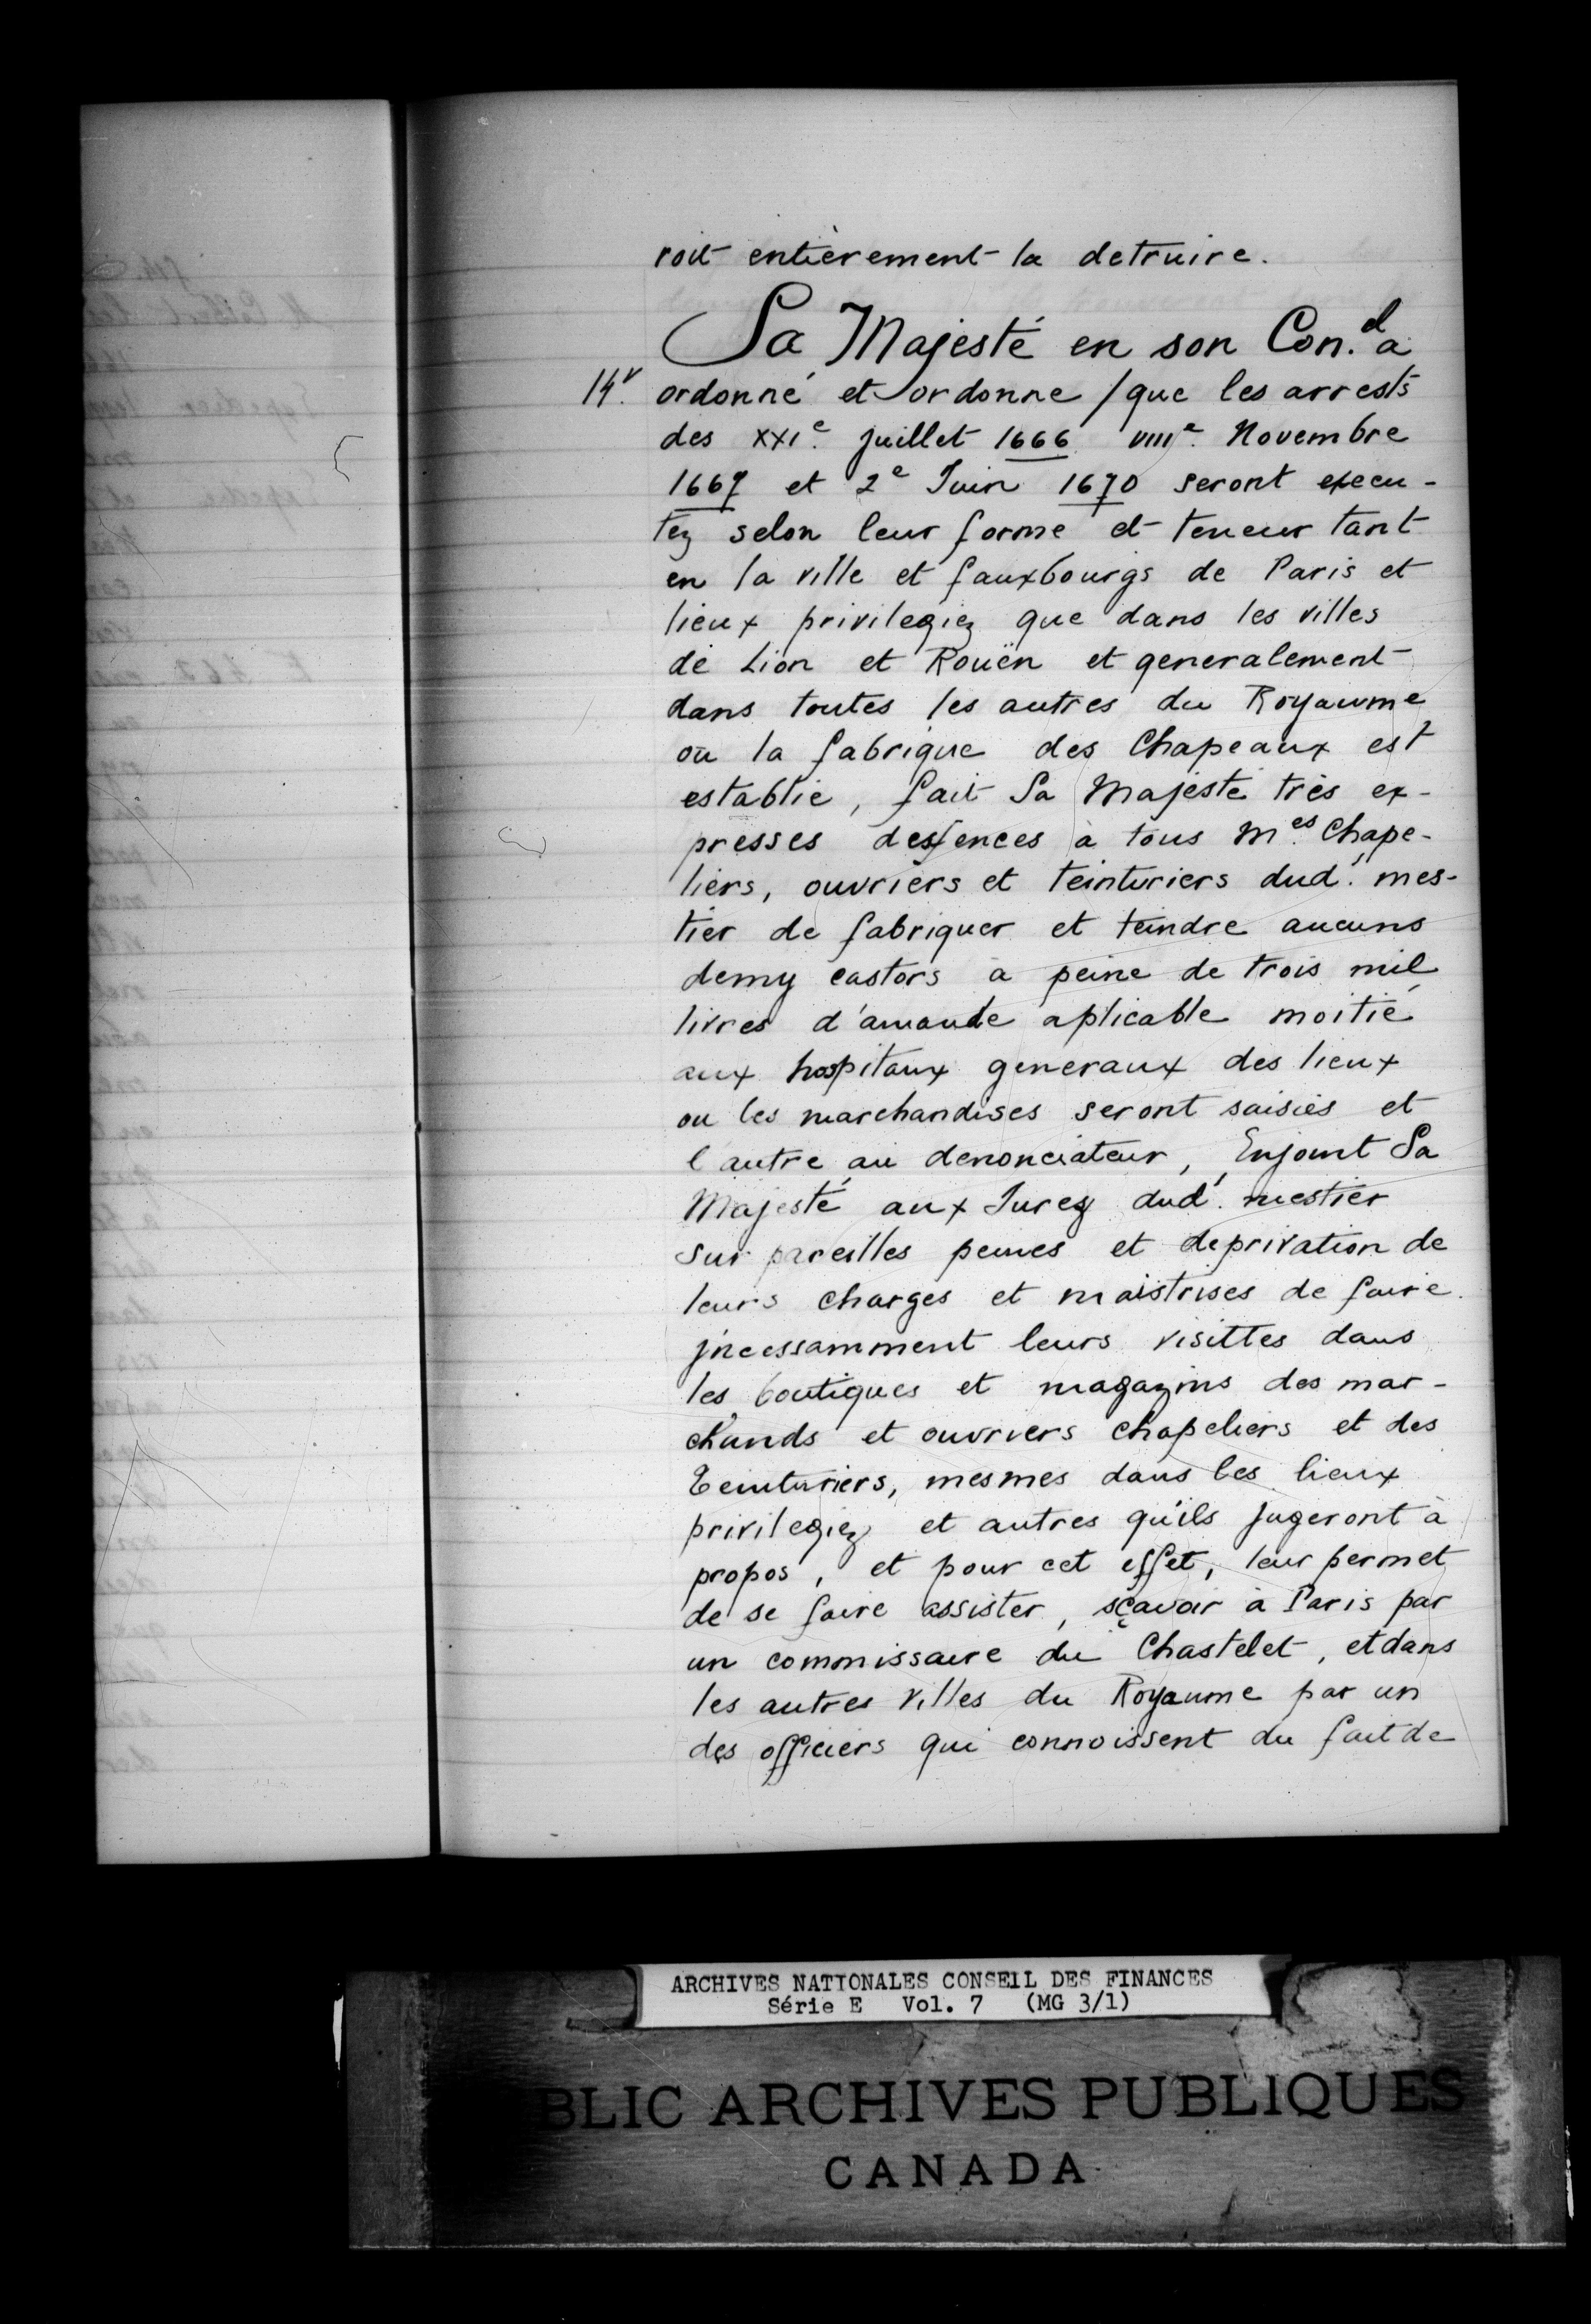 roit entièrement la detruire.
Sa Majesté en son Con.el a
14.v ordonné et ordonne / que les arrests
des XXIe. juillet 1666 VIIIe. Novembre
1667 et 2e Juin 1670 seront execu-
tez selon leur forme et teneur tant
en la ville et fauxbourgs de Paris et
lieux privilegiez que dans les villes
de Lion et Rouën et generalement
dans toutes les autres du Royaume
ou la fabrique des Chapeaux est
establie, fait Sa Majesté très ex-
presses desfences à tous M.es Chape-
liers, ouvriers et teinturiers dud. mes-
tier de fabriquer et teindre aucuns
demy castors à peine de trois mil
livres d'amande aplicable moitié
aux hospitaux generaux des lieux
ou les marchandises seront saisies et
l'autre au denonciateur, Enjoint Sa
Majesté aux Jurez dud. mestier
sur pareilles peines et deprivation de
leurs charges et maistrises de faire
jncessamment leurs visittes dans
les boutiques et magazins des mar-
chands et ouvriers chapeliers et des
Teinturiers, mesmes dans les lieux
privilegiez et autres qu'ils jugeront à
propos, et pour cet effet, leur permet
de se faire assister, sçavoir à Paris par
un commissaire du Chastelet, et dans
les autres villes du Royaume par un
des officiers qui connoissent du fait de
ARCHIVES NATIONALES CONSEIL DES FINANCES
Série E Vol. 7 (MG 3/1)
BLIC ARCHIVES PUBLIQUES
CANADA